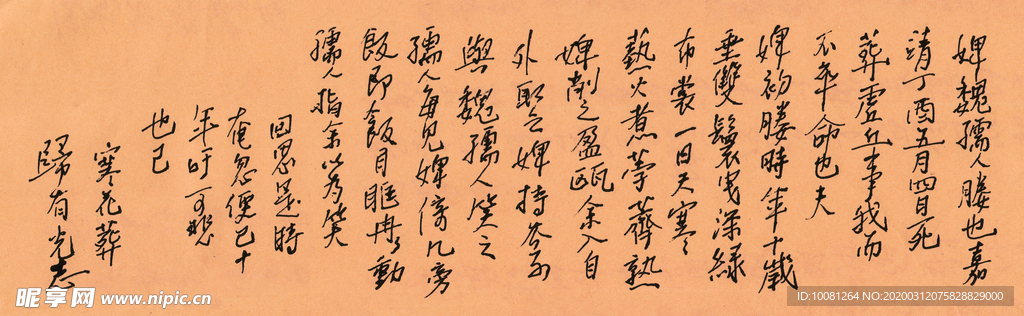 婢魏孺人媵也嘉
靖丁酉五月四日死
葬虛丘事我而
不卒命也夫
婢初媵時年十歲
垂雙鬟曳深綠
布裳一日天寒
熱火煮荸薺熟
婢削之盈甌余入自
外取之婢持去不
與魏孺人笑之
孺人每見婢倚几旁
飯即飯目眶冉冉動
孺人指余以為笑
回思是時
奄忽便已十
年吁可悲
也已
寒花葬
歸有光志
昵享网 www.nipic.cn
ID:10081264 NO:20200312075828829000